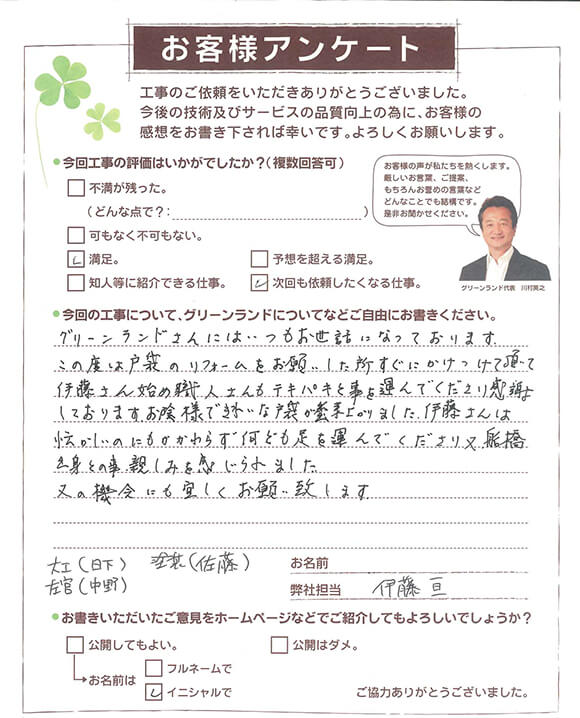 お客様アンケート
工事のご依頼をいただきありがとうございました。
今後の技術及びサービスの品質向上の為に、お客様の
感想をお書き下されば幸いです。よろしくお願いします。
●今回工事の評価はいかがでしたか?(複数回答可)
不満が残った。
(どんな点で?: )
可もなく不可もない。
満足。
予想を超える満足。
知人等に紹介できる仕事。
次回も依頼したくなる仕事。
お客様の声が私たちを熱くします。
厳しいお言葉、ご提案、
もちろんお誉めの言葉など
どんなことでも結構です。
是非お聞かせください。
グリーンランド代表 川村英之
●今回の工事について、グリーンランドについてなどご自由にお書きください。
グリーンランドさんにはいつもお世話になっております
この度は戸袋のリフォームをお願いした所すぐにかけつけて頂いて
伊藤さん始め職人さんもテキパキと事を運んでくださり感謝
しております。お陰様できれいな戸袋が出来上がりました。伊藤さんは
忙がしいのにもかかわらず何ども足を運んでくださり又、船橋
出身との事、親しみを感じられました
又の機会にも宜しくお願い致します
大工(日下) 塗装(佐藤)
左官(中野)
お名前
弊社担当 伊藤 亘
●お書きいただいたご意見をホームページなどでご紹介してもよろしいでしょうか?
公開してもよい。
公開はダメ。
お名前は
フルネームで
イニシャルで
ご協力ありがとうございました。